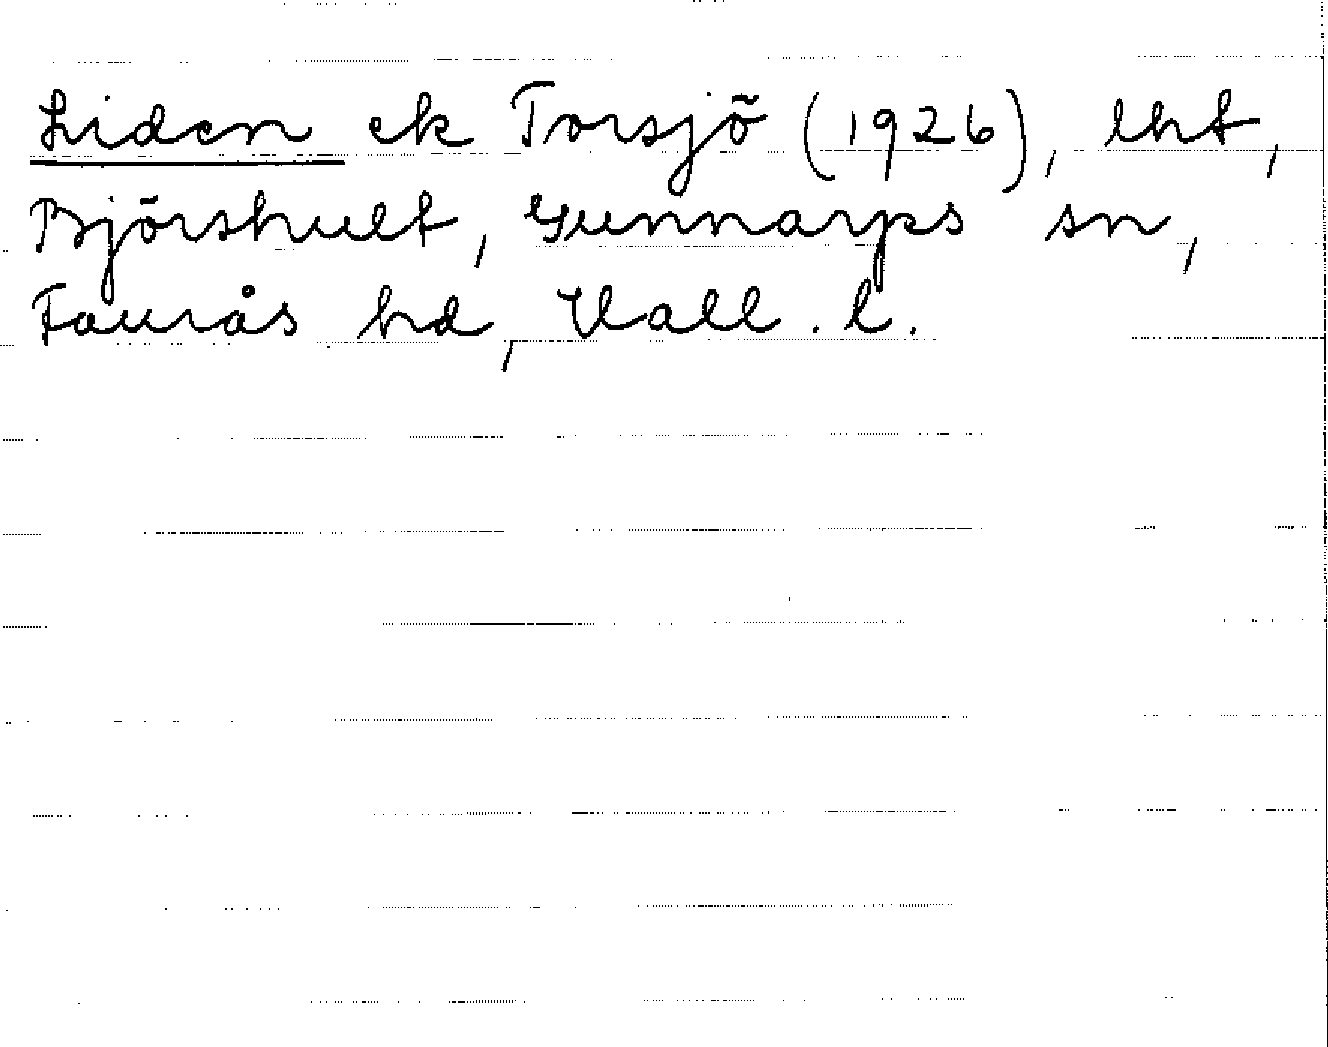 Liden ek Torsjö (1926), lht,
Björshult, Gunnarps sn,
Faurås hd, Hall. l.